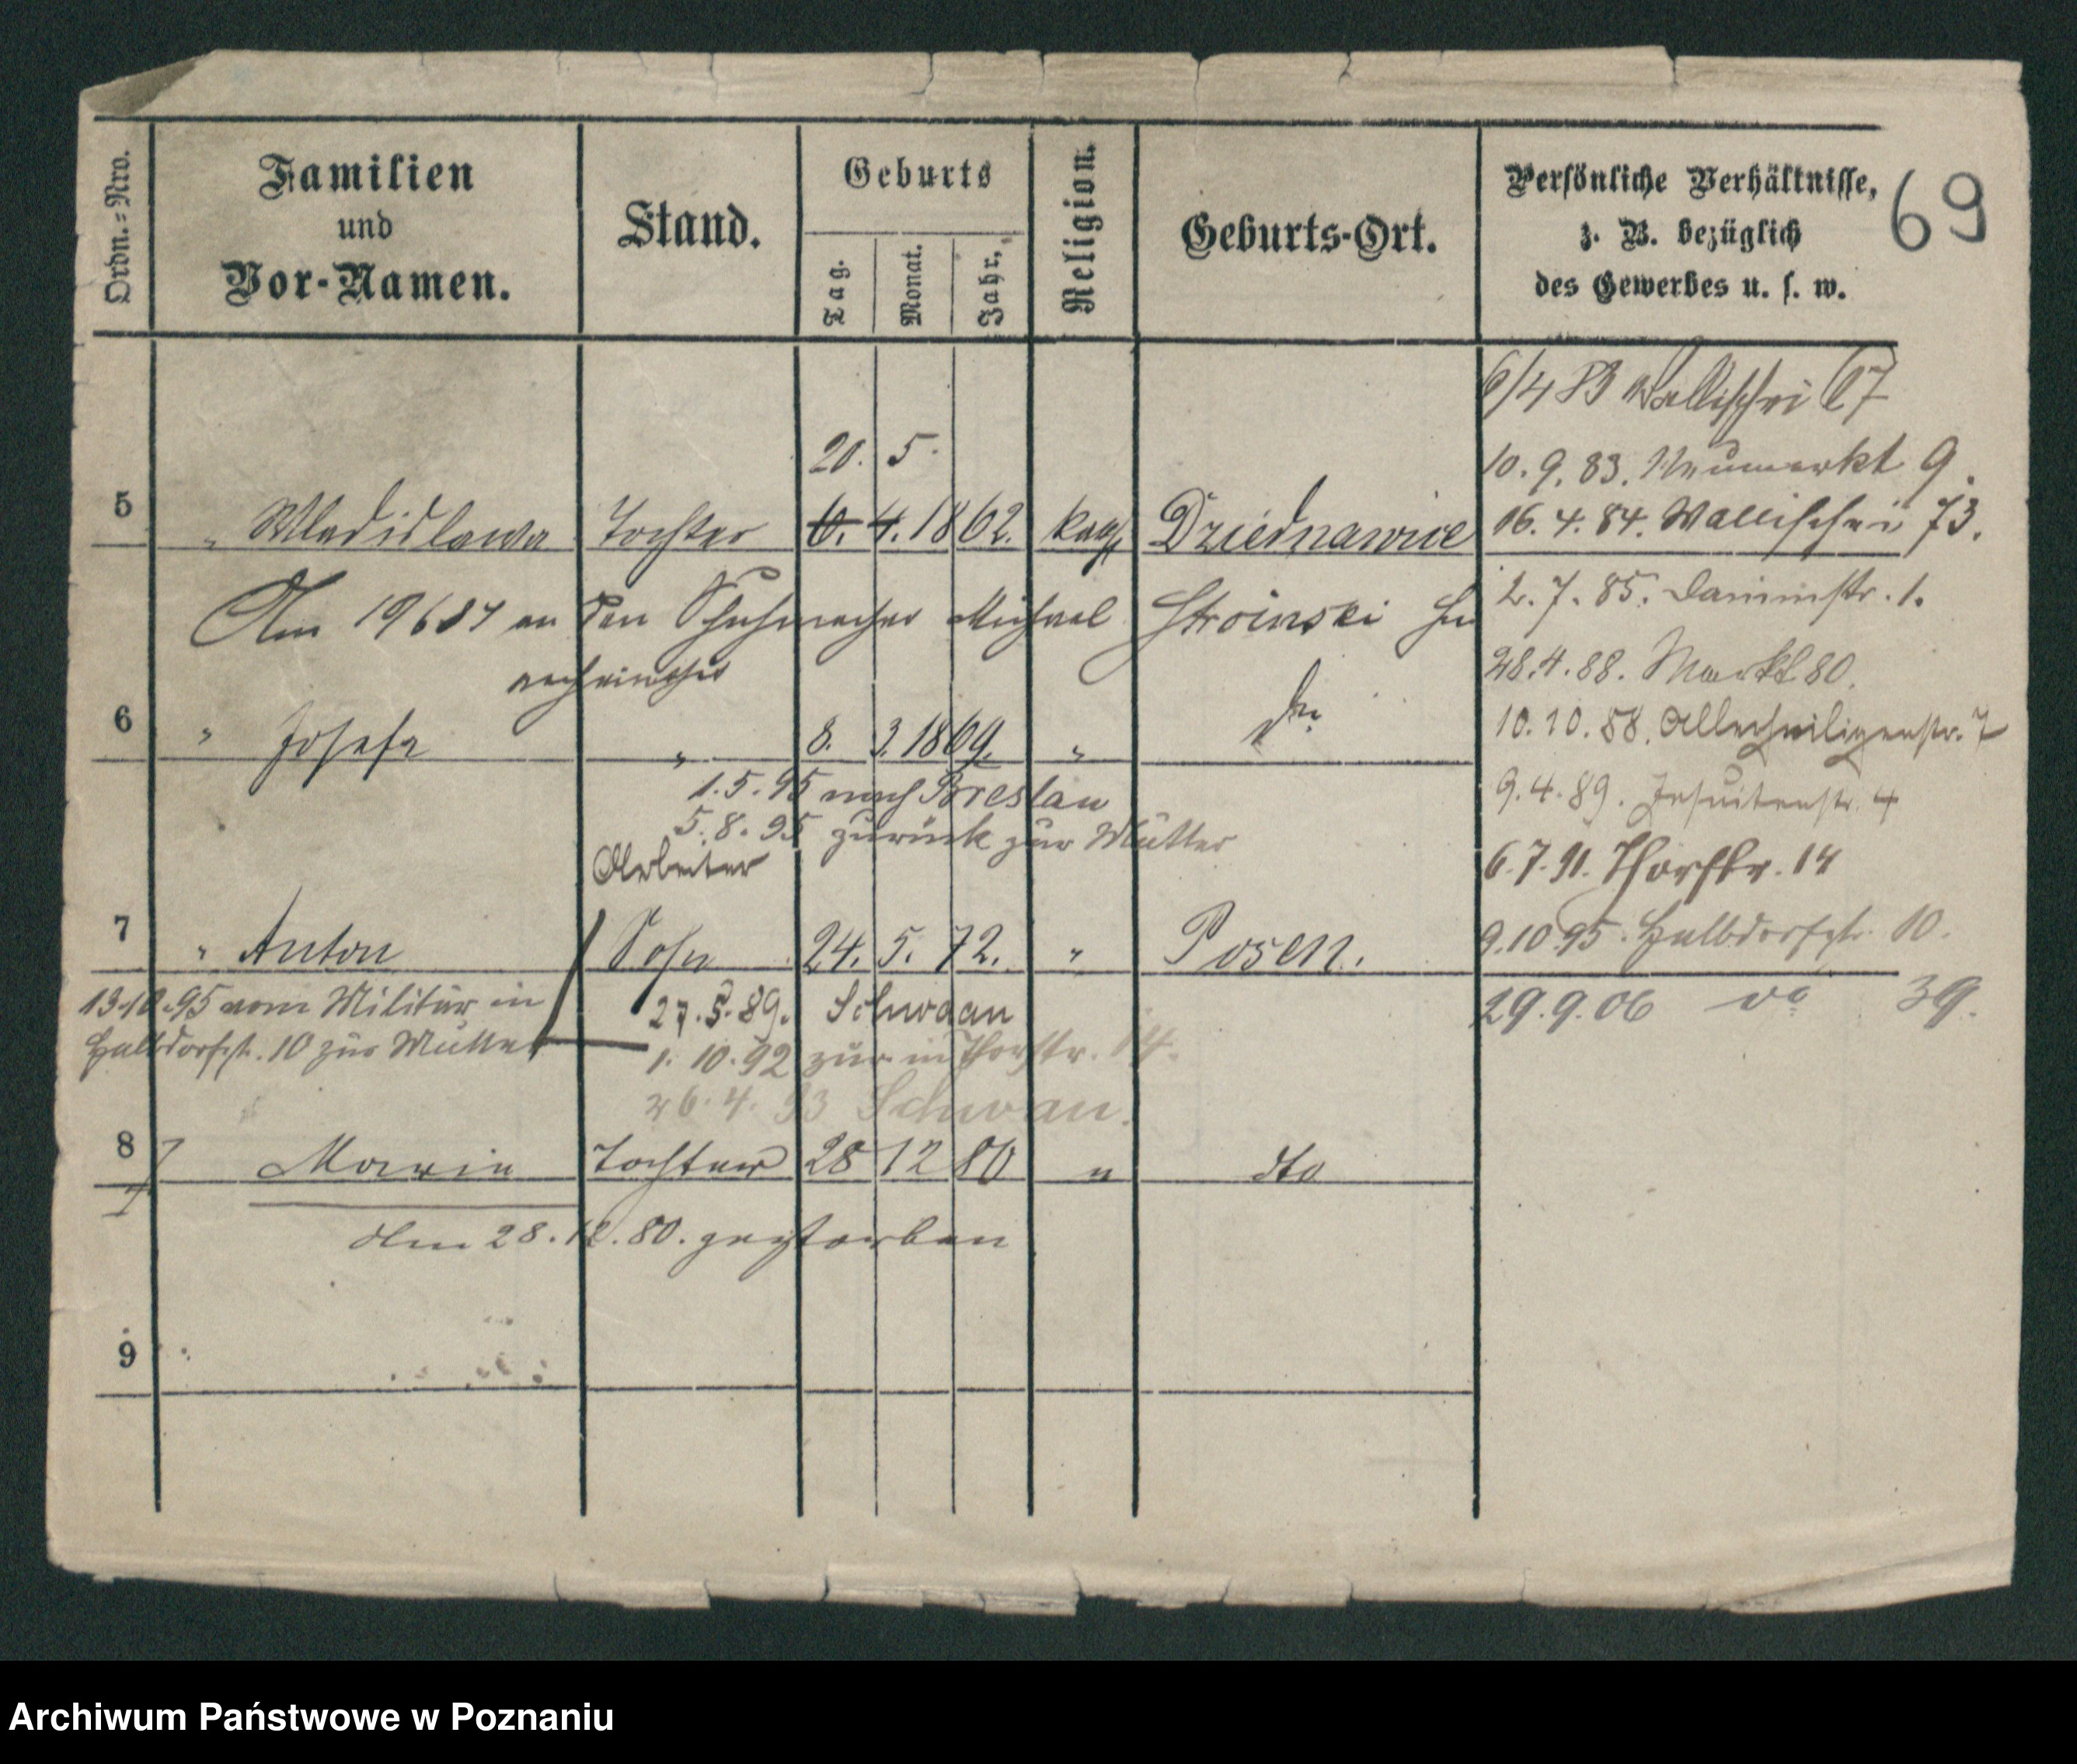 69
Ordn.=Nro.
Familien
und
Vor-Namen.
Stand.
Geburts
Tag.
Monat.
Jahr.
Religion.
Geburts-Ort.
Persönliche Verhältnisse,
z. B. bezüglich
des Gewerbes u. s. w.
6/4 83 Wallischei 67
10. 9. 83. Neumarkt 9.
20. 5.
5 " Wladislawa Tochter 6. 4. 1862. kath Dziednawice
16. 4. 84. Wallischei 73.
Am 19 6 87 an den Schuhmacher Michael Stroinski
verheirathet
2. 7. 85. Dammstr. 1.
28. 4. 88. Markt 80.
6 " Josefa " 8. 3. 1869. " do
10. 10. 88. Allerheiligenstr. 7
1. 5. 95 nach Breslau
5. 8. 95 zurück zur Mutter
9. 4. 89. Jesuitenstr. 4
6. 7. 91. Thorstr. 14
Arbeiter
7 " Anton Sohn 24. 5. 72. " Posen.
9. 10 95. Halbdorfstr. 10.
13.10.95 vom Militär in
Halbdorfstr. 10 zur Mutter
27. 5. 89. Schwaan
1. 10. 92 zur. in Thorstr. 14.
26. 4. 93 Schwaan.
29. 9. 06 do 39.
8 Marie Tochter 28 12 80 " dto
Am 28. 12. 80. gestorben
9
Archiwum Państwowe w Poznaniu